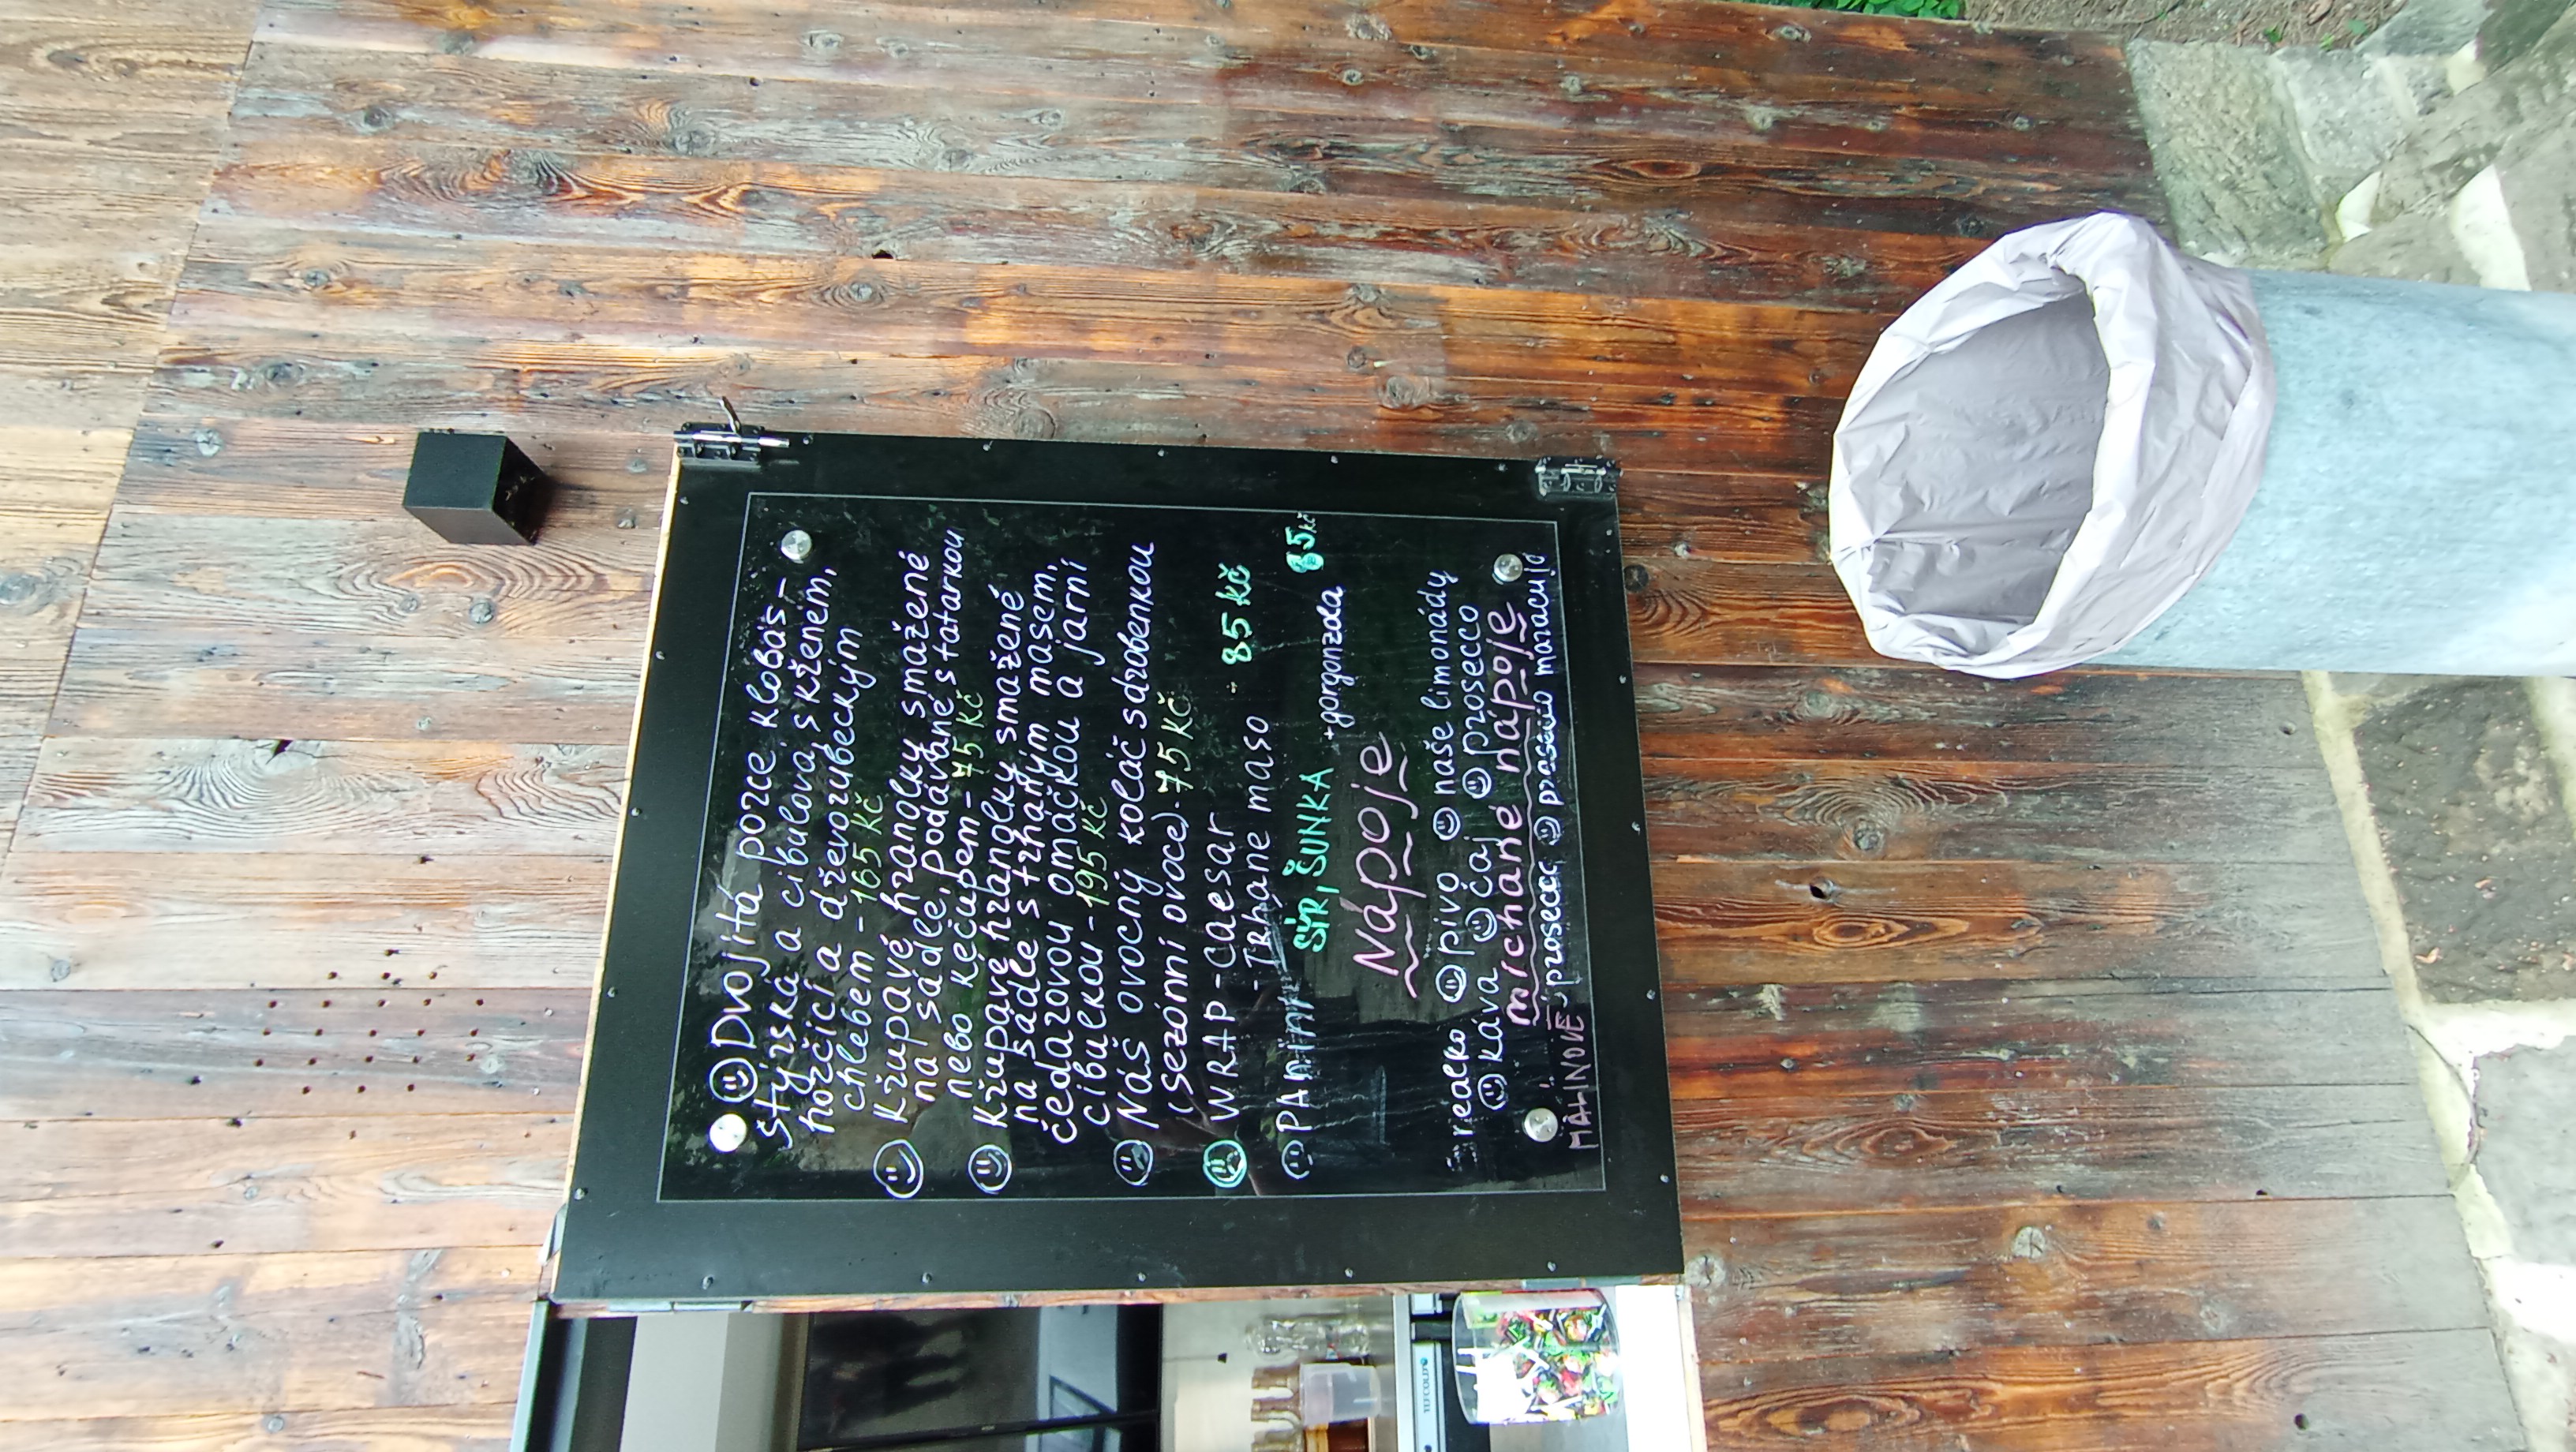 Dvojitá porce klobás -
štýrská a cibulová, s křenem,
hořčicí a dřevorubeckým
chlebem - 165 Kč
Křupavé hranolky smažené
na sádle, podávané s tatarkou
nebo kečupem - 75 Kč
Křupavé hranolky smažené
na sádle s trhaným masem,
čedarovou omáčkou a jarní
cibulkou - 195 Kč
Náš ovocný koláč s drobenkou
(sezónní ovoce) - 75 Kč
WRAP - CAESAR - 85 Kč
- TRHANÉ MASO
PANINI SÝR, ŠUNKA 85 Kč
+ gorgonzola
Nápoje
nealko pivo naše limonády
káva čaj prosecco
míchané nápoje
MALINOVÉ prosecco prosecco maracuja
TEFCOLD